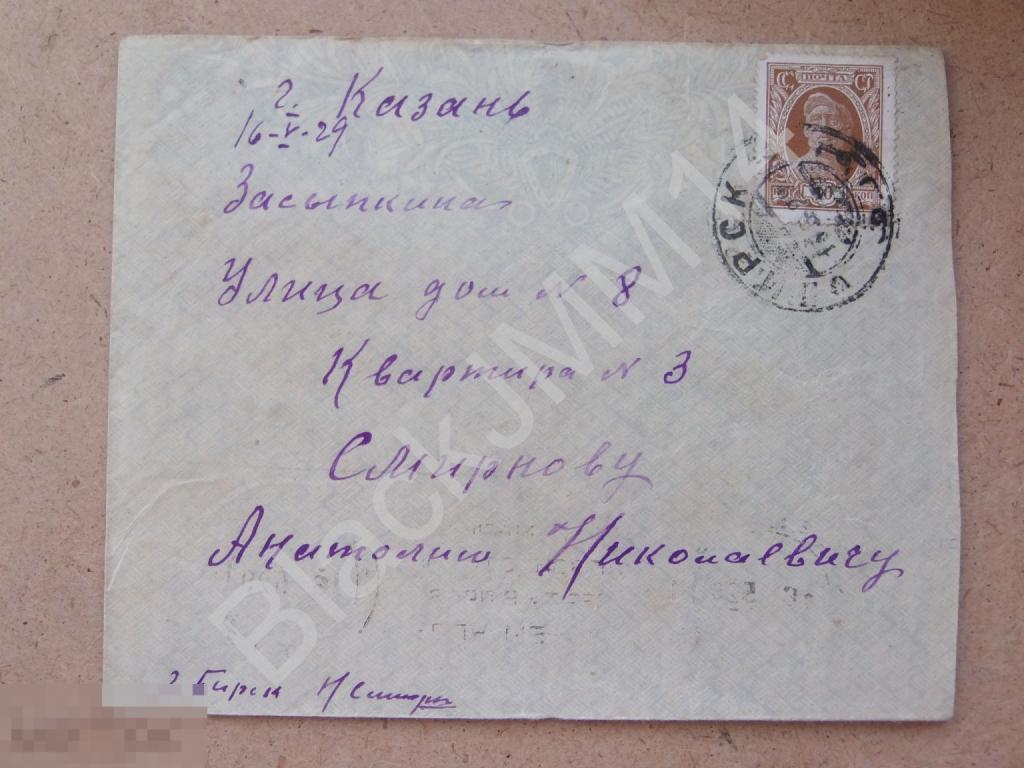 г. Казань
16-V-29
Засыпкина
Улица дом № 8
Квартира № 3
Смирнову
Анатолию Николаевичу
г Бирск Н Смирн
ПОЧТА
КОП
БИРСК
BlackJMM14